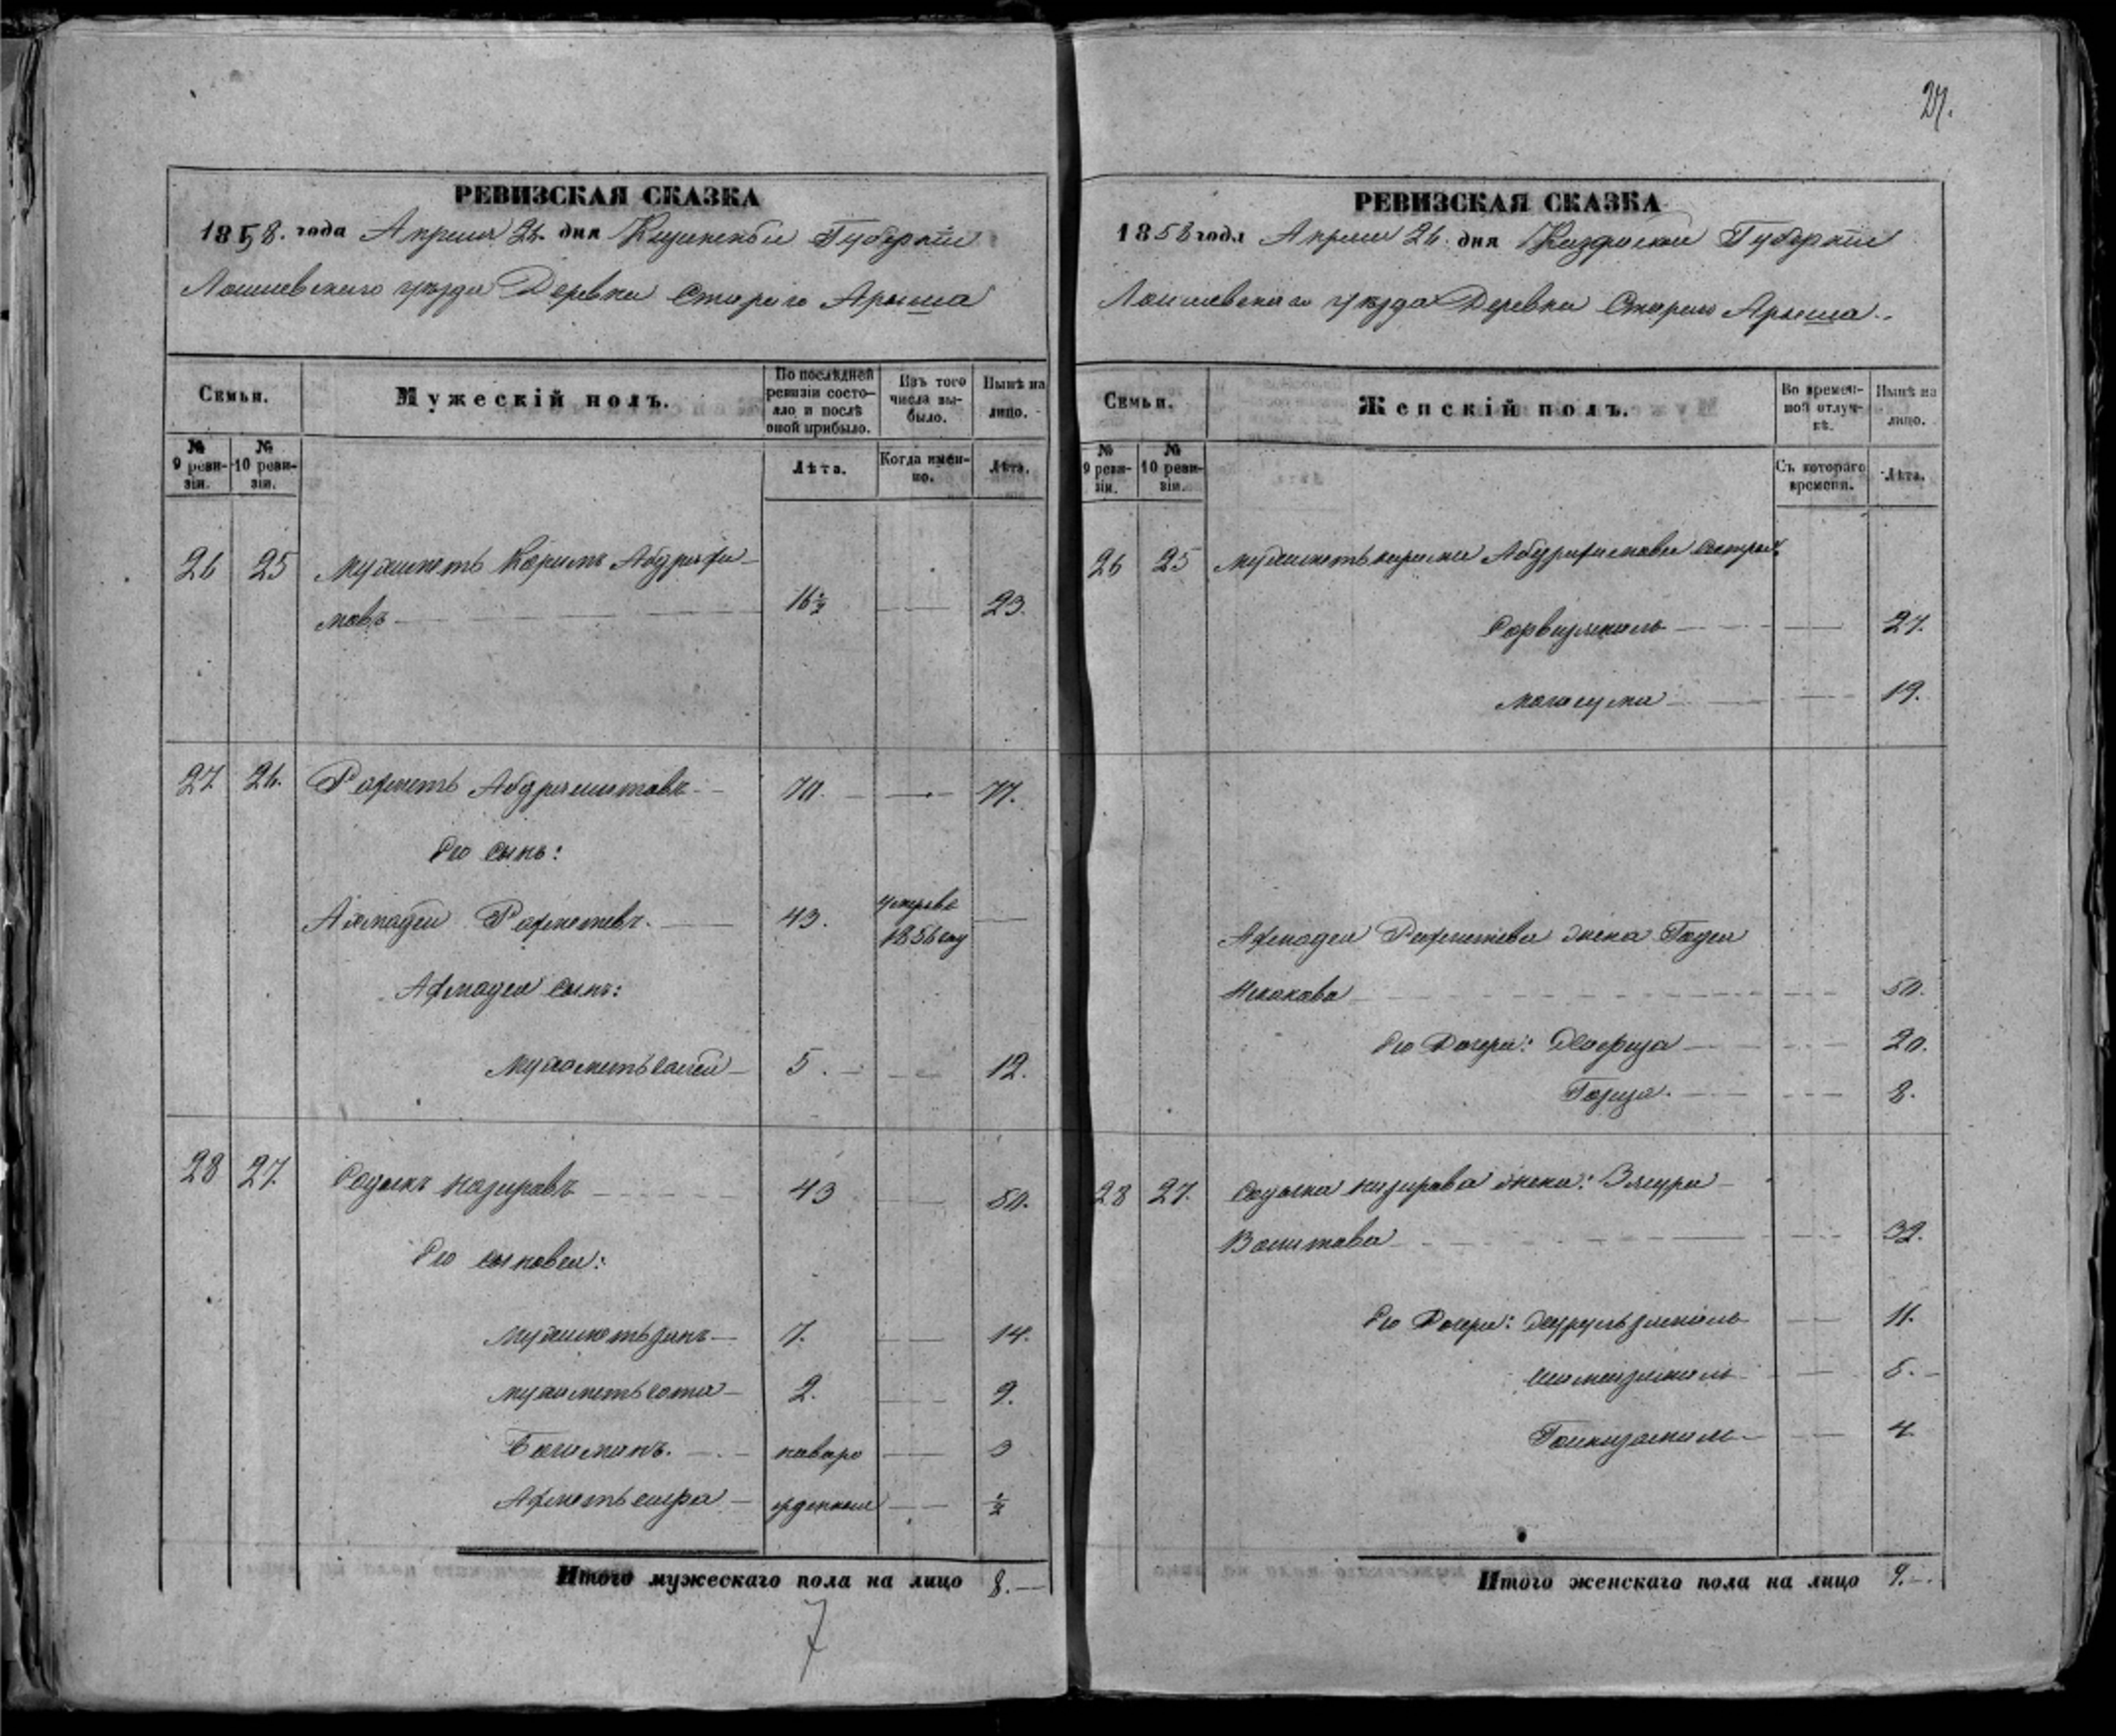 27.
РЕВИЗСКАЯ СКАЗКА
1858. года Апреля 26. дня Казанской Губерніи
Лаишевскаго уѣзда Деревни Стараго Арыша
Семьи.
Мужескій полъ.
По послѣдней ревизіи состояло и послѣ оной прибыло.
Изъ того числа выбыло.
Нынѣ на лицо.
№ 9 ревизіи.
№ 10 ревизіи.
Лѣта.
Когда именно.
Лѣта.
26 25 Мухаметь Каримъ Абдряфи-
мовъ 16½ 23.
27 26. Рахметь Абдряшитовъ 70. 77.
Его сынъ:
Ахмадей Рахметевъ. 43. умеръ въ
1856 году
Ахмадея сынъ:
Мухаметьсалей 5. 12.
28 27. Садыкъ Назировъ 43 50.
Его сыновья:
Мухаметьзянъ 7. 14.
Мухаметьсата 2. 9.
новоро 3
Ахметьсафа жденные ½
Итого мужескаго пола на лицо 8.
7
РЕВИЗСКАЯ СКАЗКА
1858 года Апреля 26. дня Казанской Губерніи
Лаишевскаго уѣзда Деревни Стараго Арыша.
Семьи.
Женскій полъ.
Во временной отлучкѣ.
Нынѣ на лицо.
№ 9 ревизіи.
№ 10 ревизіи.
Съ котораго времени.
Лѣта.
26 25 Мухаметькарима Абдряфимова сестры:
Сарвиямаль 27.
Магасума 19.
Ахмадея Рахметева жена
50.
Его дочери: Хафиза 20.
Газиза. 8.
28 27. Садыка Назирова жена:
Вашитова 32.
Его дочери: 11.
5.
4.
Итого женскаго пола на лицо 9.